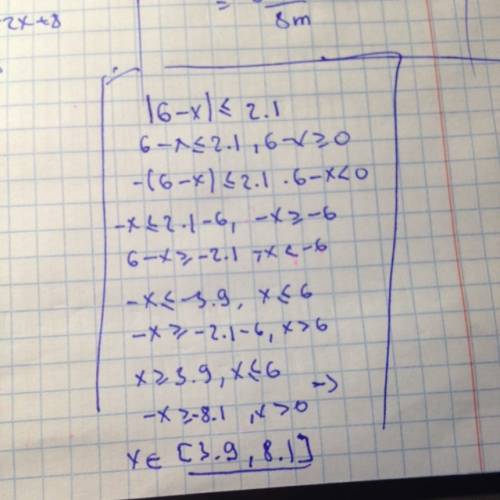 -2x+8
=
8m
|6-x| ≤ 2.1
6-x ≤ 2.1 , 6-x ≥ 0
-(6-x) ≤ 2.1 . 6-x < 0
-x ≤ 2.1-6, -x ≥ -6
6-x ≥ -2.1 -x < -6
-x ≤ -3.9, x ≤ 6
-x ≥ -2.1-6, x > 6
x ≥ 3.9, x ≤ 6
-x ≥ -8.1 , x > 0 →
x ∈ [3.9, 8.1]